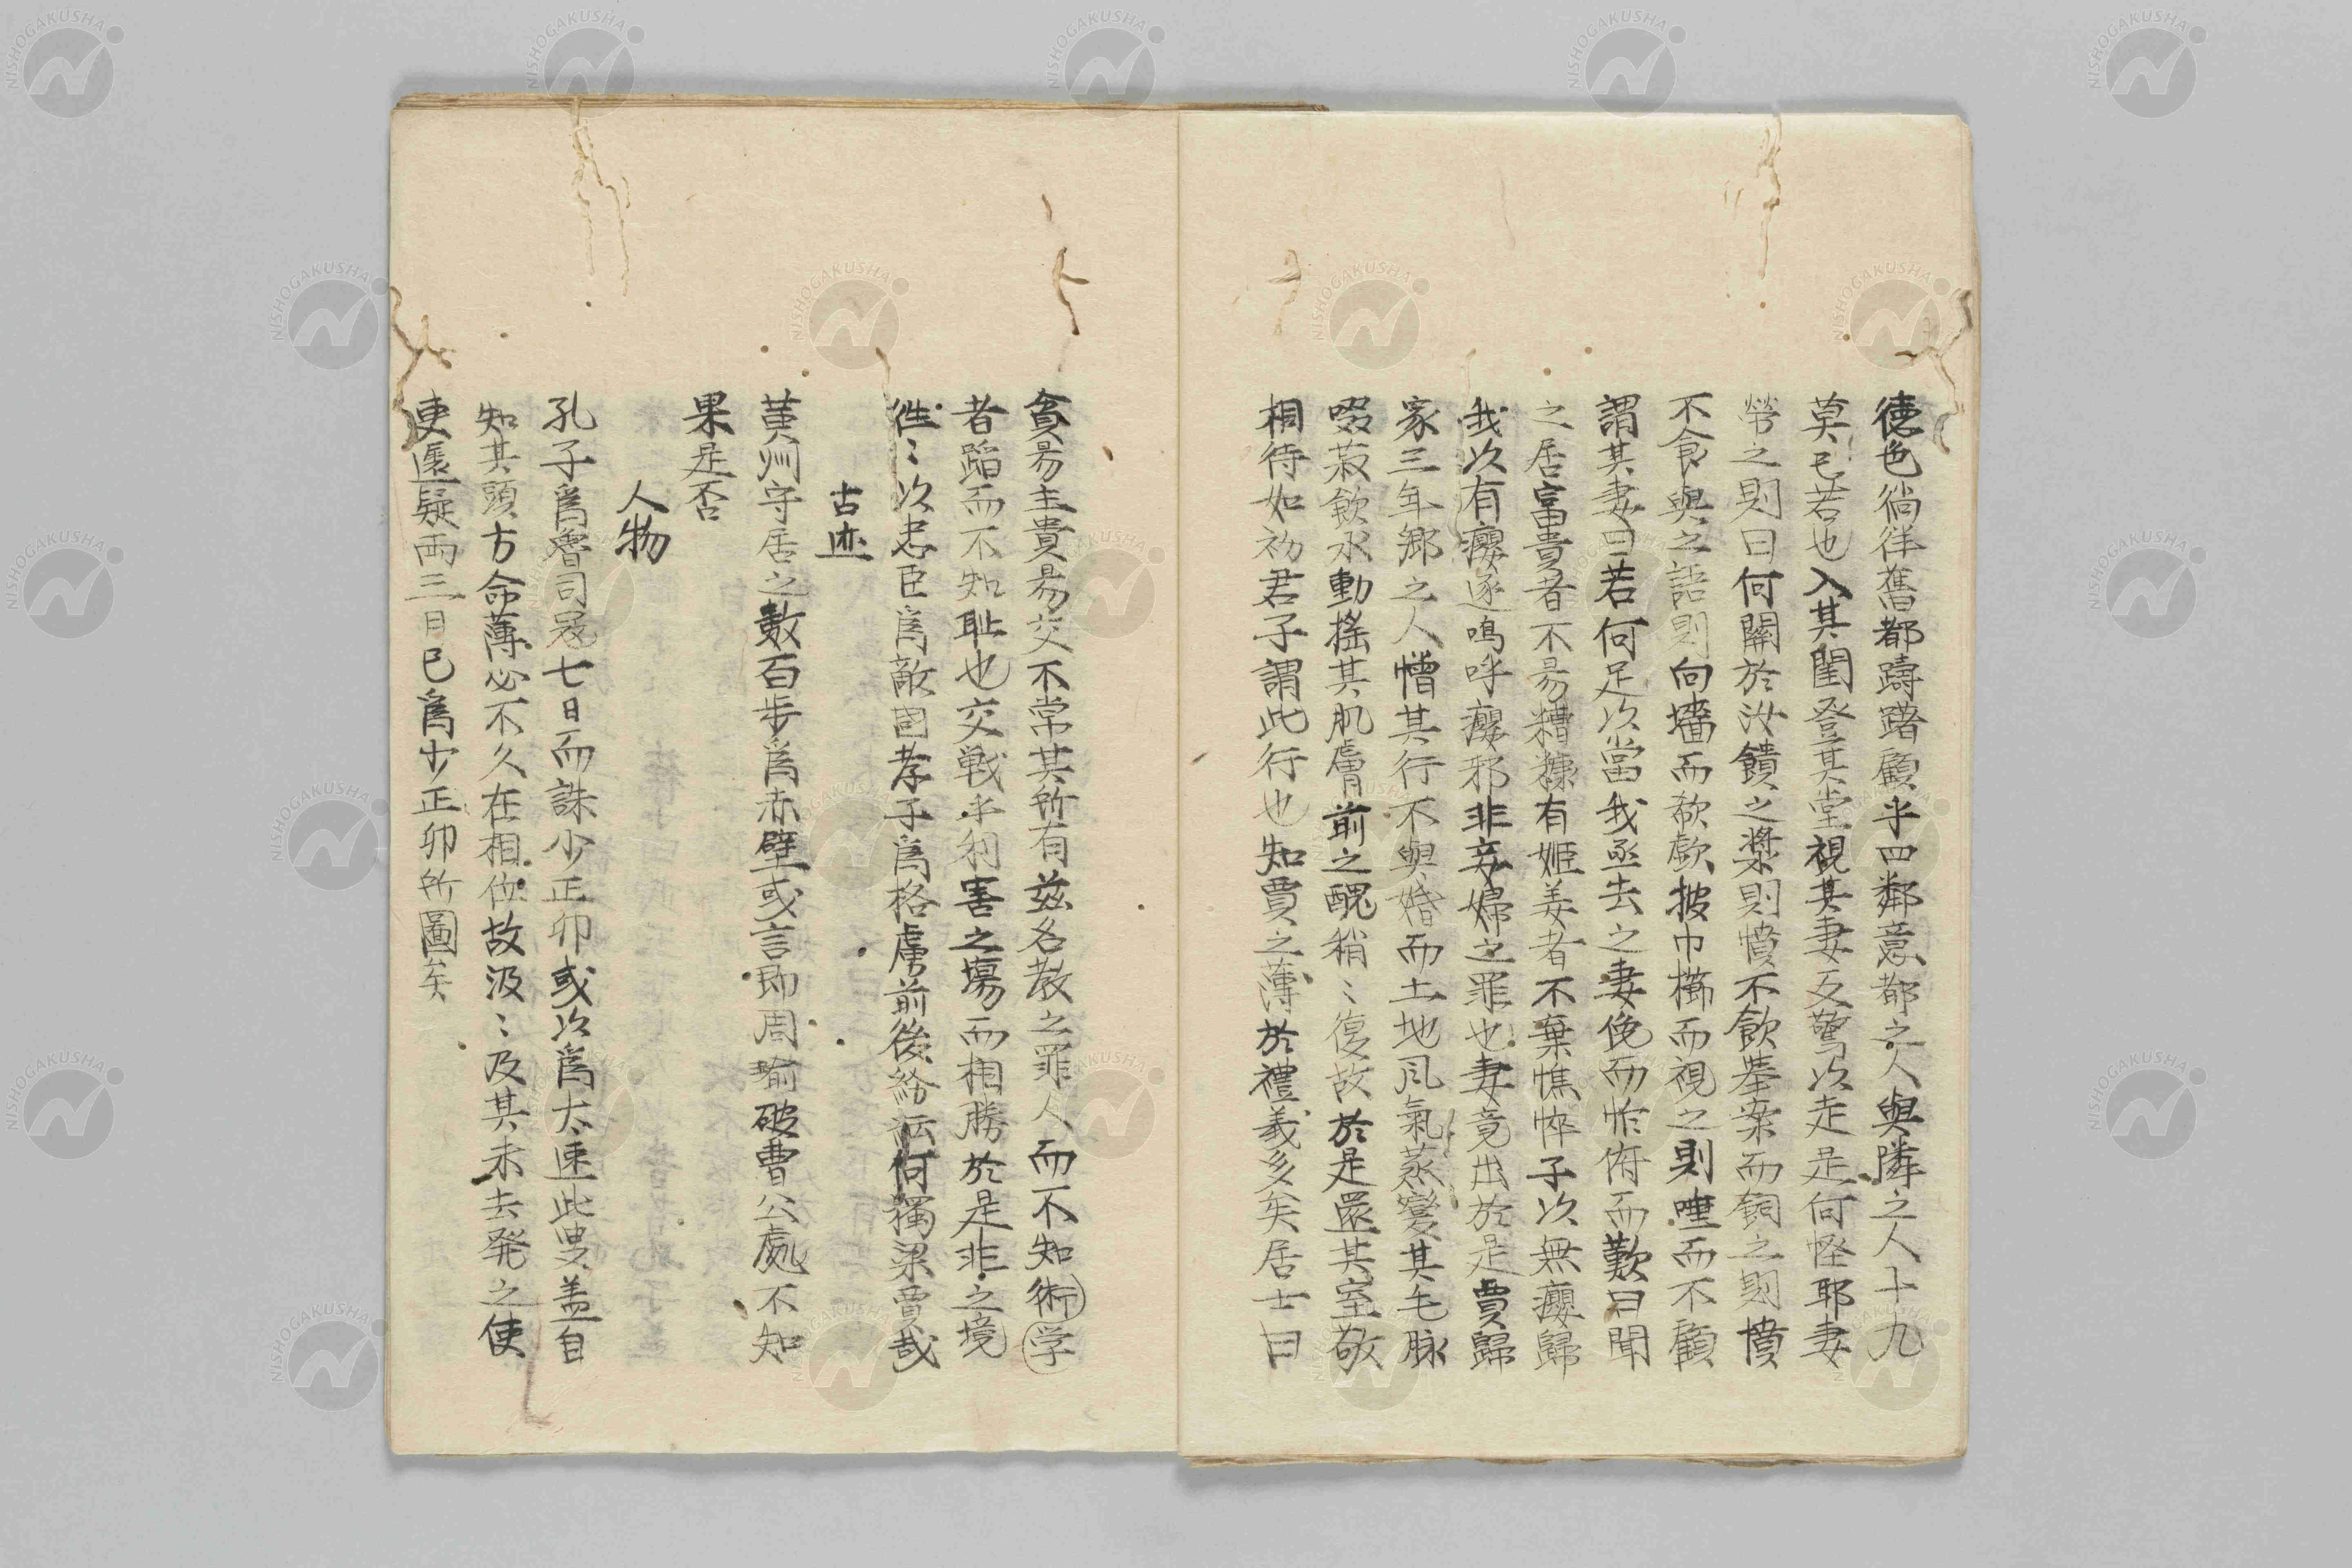 徳色徜徉舊都躊躇顧乎四鄰意都之人與隣之人十九
莫已若也入其閨登其堂視其妻反驚以走是何怪耶妻
勞之則曰何關於汝饋之漿則憤不飲舉案而餉之則憤
不食與之語則向墻而欷歔披巾櫛而視之則唾而不顧
謂其妻曰若何足以當我亟去之妻俛而怍俯而歎曰聞
之居富貴者不易糟糠有姬姜者不棄憔悴子以無癭歸
我以有癭逐嗚呼癭邪非妾婦之罪也妻竟出於是賈歸
家三年鄉之人憎其行不與婚而土地風氣蒸變其毛脉
啜菽飲水動搖其肌膚前之醜稍〻復故於是還其室敬
相待如初君子謂此行也知賈之薄於禮義多矣居士曰
貧易主貴易交不常其所有茲名教之罪人而不知術学
者蹈而不知耻也交戰乎利害之場而相勝於是非之境
徃〻以忠臣爲敵國孝子爲格虜前後紛紜何獨梁賈哉
古迹
黄州守居之數百步爲赤壁或言即周瑜破曹公處不知
果是否
人物
孔子爲魯司冦七日而誅少正卯或以爲太速此叟盖自
知其頭方命薄必不久在相位故汲〻及其未去発之使
更遲疑兩三日已爲少正卯所圖矣
NISHOGAKUSHA